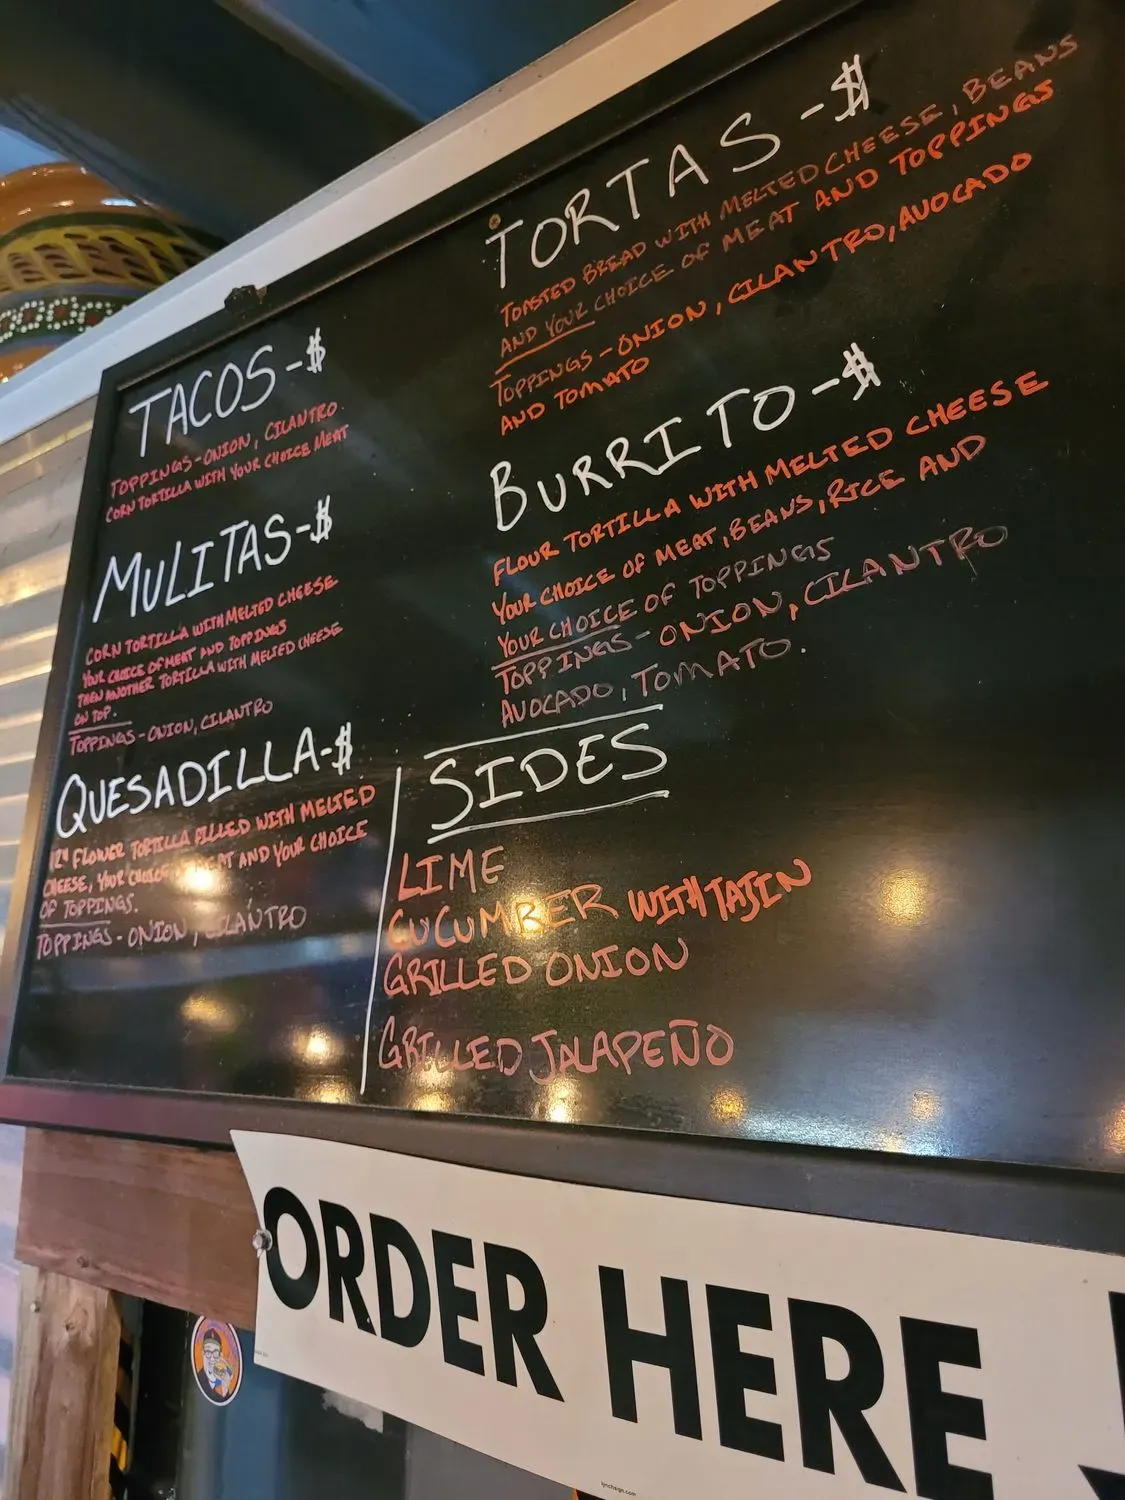 TACOS-$
TOPPINGS-ONION, CILANTRO.
CORN TORTILLA WITH YOUR CHOICE MEAT
MULITAS-$
CORN TORTILLA WITH MELTED CHEESE
YOUR CHOICE OF MEAT AND TOPPINGS
THEN ANOTHER TORTILLA WITH MELTED CHEESE
ON TOP.
TOPPINGS-ONION, CILANTRO
QUESADILLA-$
12" FLOWER TORTILLA FILLED WITH MELTED
CHEESE, YOUR CHOICE MEAT AND YOUR CHOICE
OF TOPPINGS.
TOPPINGS-ONION, CILANTRO
TORTAS-$
TOASTED BREAD WITH MELTED CHEESE, BEANS
AND YOUR CHOICE OF MEAT AND TOPPINGS
TOPPINGS-ONION, CILANTRO, AVOCADO
AND TOMATO
BURRITO-$
FLOUR TORTILLA WITH MELTED CHEESE
YOUR CHOICE OF MEAT, BEANS, RICE AND
YOUR CHOICE OF TOPPINGS
TOPPINGS-ONION, CILANTRO
AVOCADO, TOMATO.
SIDES
LIME
CUCUMBER WITH TAJIN
GRILLED ONION
GRILLED JALAPEÑO
ORDER HERE